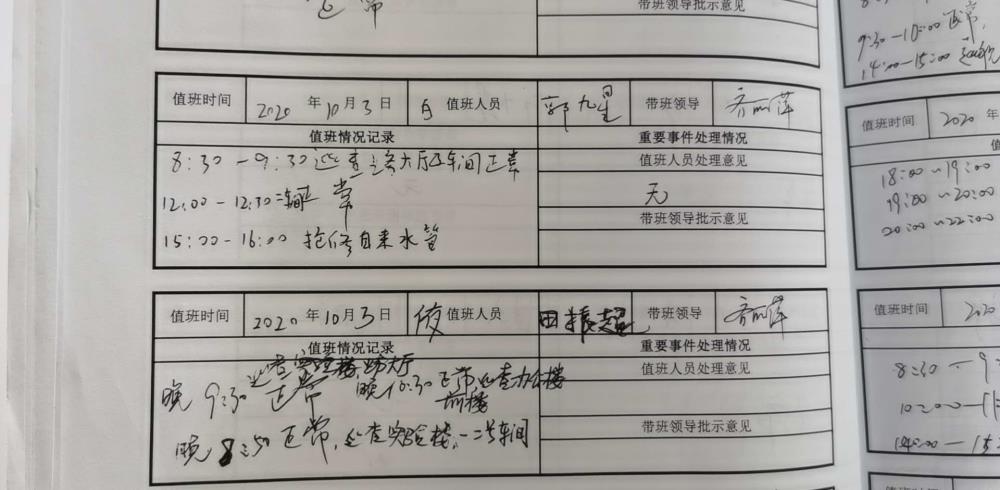 正常
带班领导批示意见
9:30-10:00 正常,
14:00-15:00
值班时间 2020年10月3日 白 值班人员 郭九星 带班领导 齐丽萍
值班情况记录 重要事件处理情况
8:30-9:30 巡查 大厅及车间正常
值班人员处理意见
12:00-12:30 车间正常
无
带班领导批示意见
15:00-16:00 抢修自来水管
值班时间 2020年
18:00~19:00
19:00~20:00
20:00~22:00
值班时间 2020年10月3日 夜 值班人员 田振超 带班领导 齐丽萍
值班情况记录 重要事件处理情况
值班人员处理意见
晚 9:30 正常 晚10:30 正常,巡查办公楼
前楼
带班领导批示意见
晚 8:50 正常,巡查实验楼,一二号车间
值班时间 202
8:30-9
10:00-11
14:00-15
值班时间